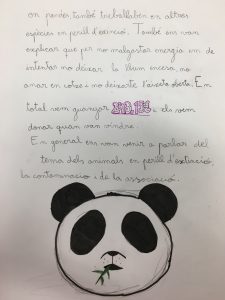 on pandes, també treballaben en altres
espècies en perill d'extinció. També ens van
explicar que per no malgastar energia em de
intentar no deixar la llum encesa, no
anar en cotxe i no deixarte l'aixeta oberta. En
total vem guanyar i els vem
donar quan van vindre.
En general ens van venir a parlar del
tema dels animals en perill d'extinció,
la contaminació i de la associació.